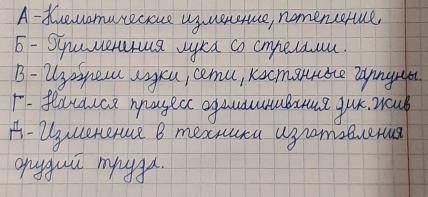 А - Клематические изменение, потепление
Б - Применения лука со стрелами.
В - Изобрели лодки, сети, костянные гарпуны.
Г - Начался процесс одомашнивания дик. жив
Д - Изменение в техники изготовления
орудий труда.